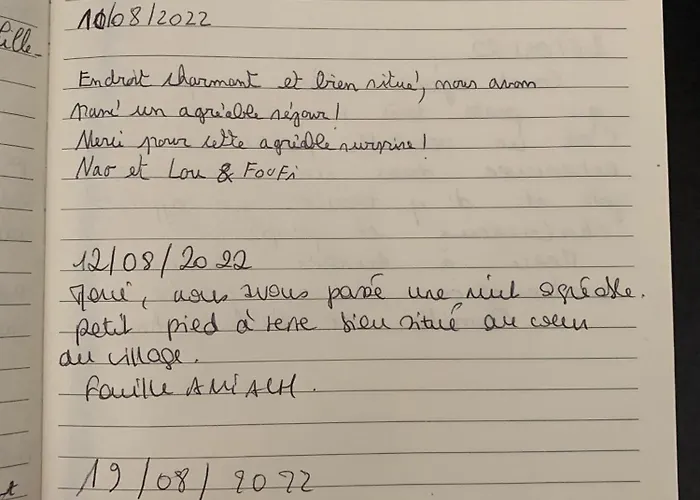 lille
10/08/2022
Endroit charmant et bien situé, nous avons
passé un agréable séjour !
Merci pour cette agréable surprise !
Nao et Lou & Foufi
12/08/2022
nous avons passé une nuit agréable.
petit pied à terre bien situé au coeur
du village.
Famille
19/08/2022